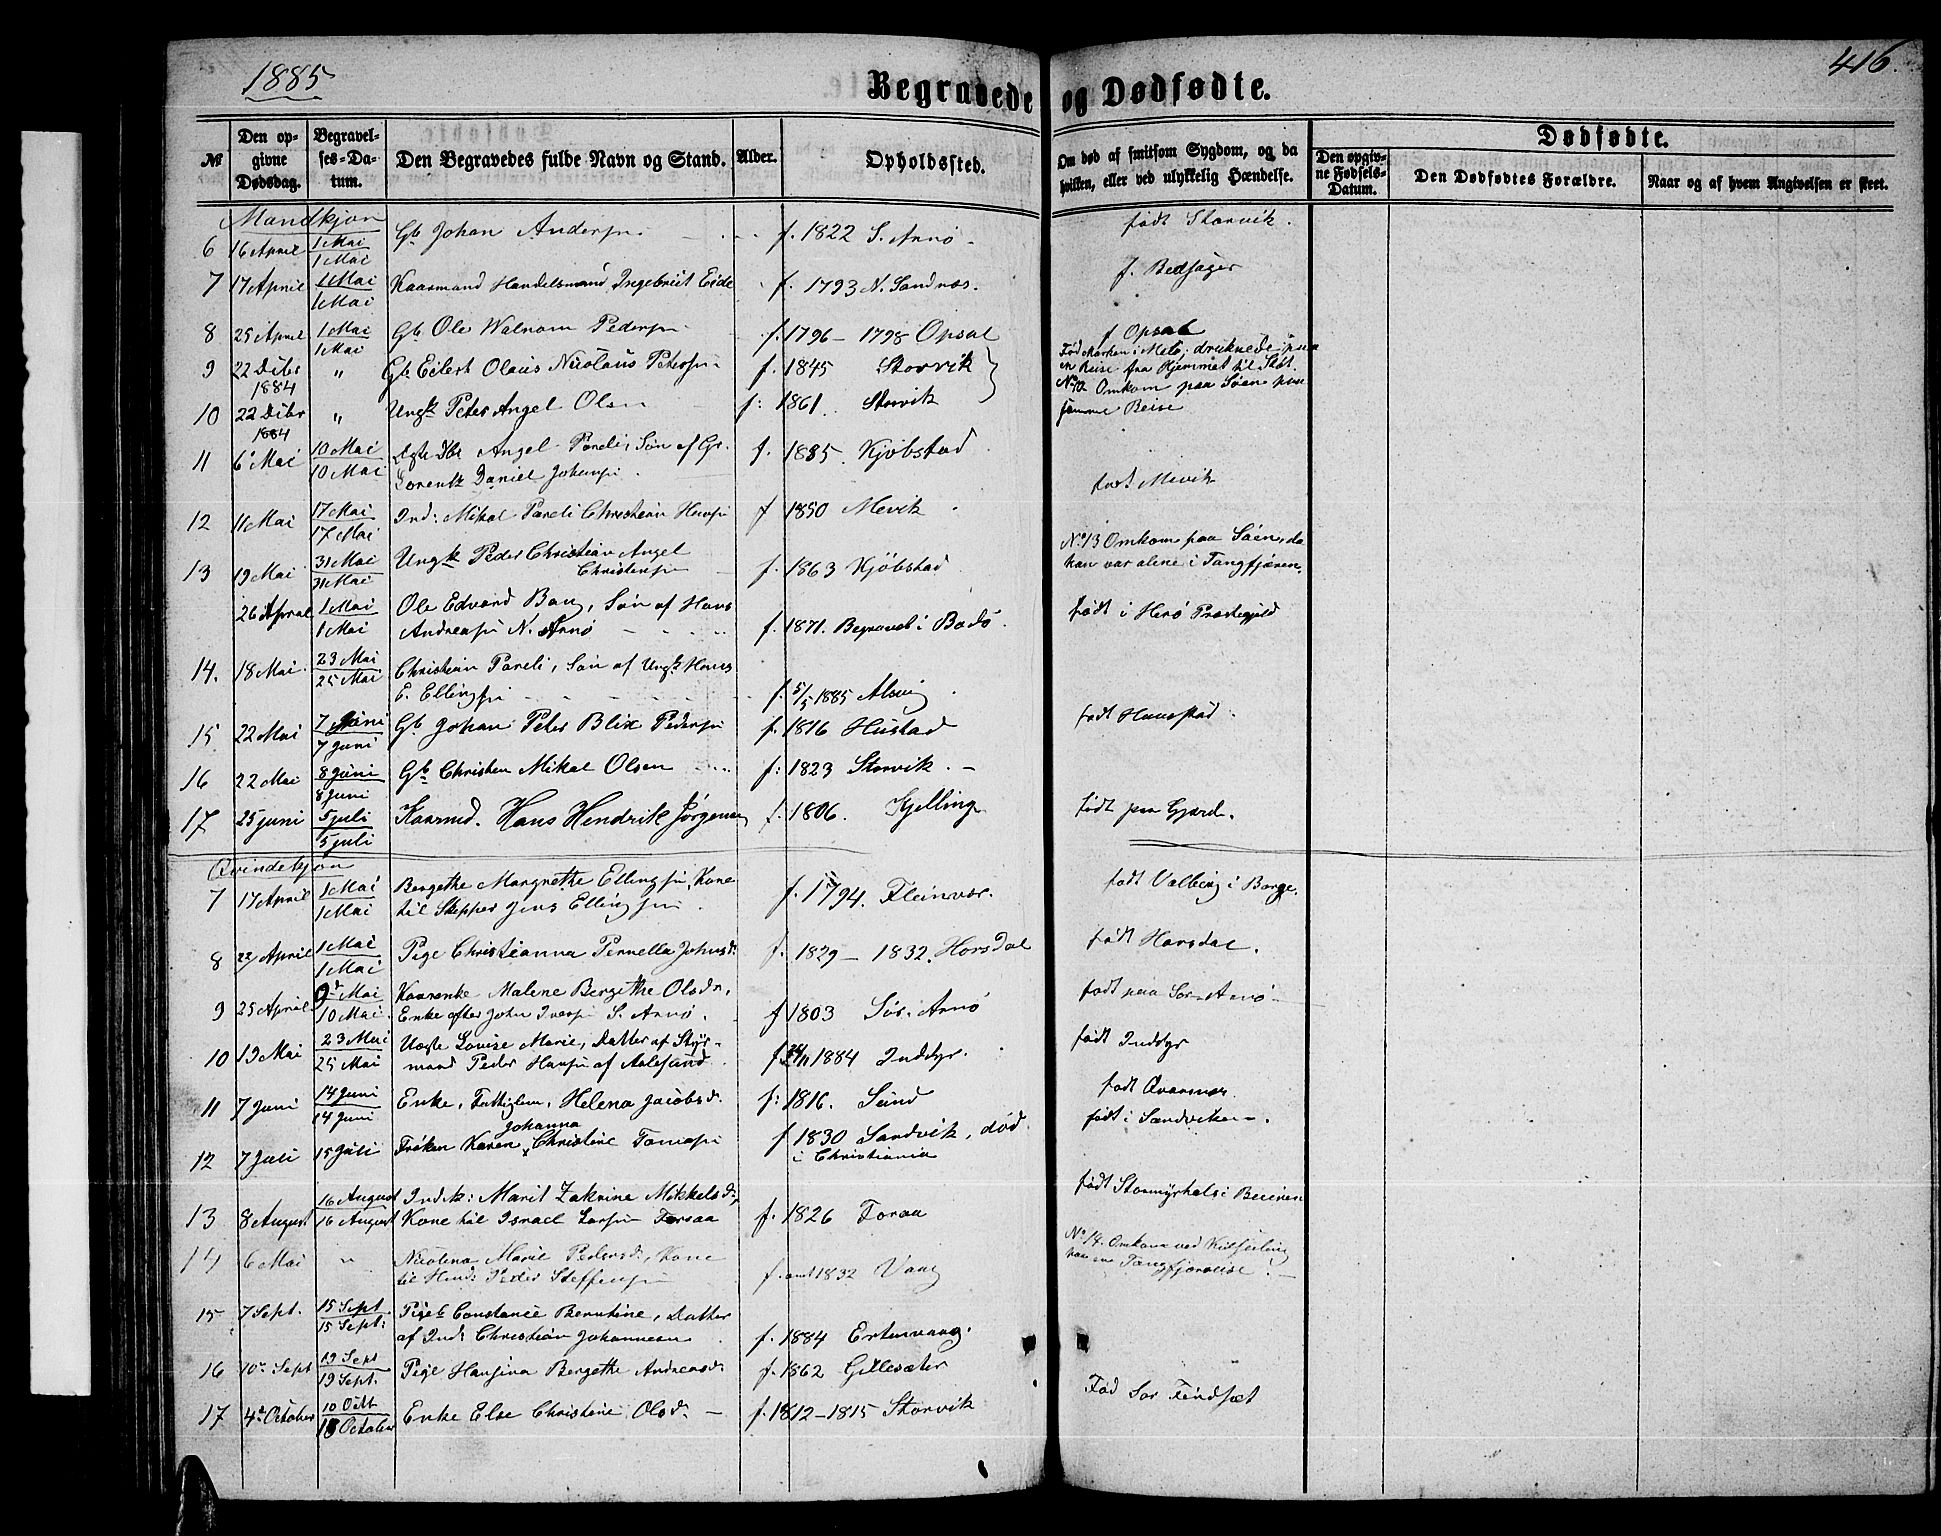 1885
416.
Begravede og Dødfødte.
№
Den opgivne Dødsdag.
Begravelses-Datum.
Den Begravedes fulde Navn og Stand.
Alder.
Opholdssted.
Om død af smitsom Sygdom, og da hvilken, eller ved ulykkelig Hændelse.
Dødfødte.
Den opgivne Fødsels-Datum.
Den Dødfødtes Forældre.
Naar og af hvem Angivelsen er skeet.
Mandkjøn
6 16 April 1 Mai 1 Mai Gb Johan Andersen f. 1822 S. Arnø født Storvik.
7 17 April 1 Mai 1 Mai Kaarmand Handelsmand Ingebrigt Eide f. 1793 N. Sandnæs.
8 25 April 1 Mai 1 Mai Gb Ole Walnom Pedersen f. 1796 - 1798 Opsal f Opsal
9 22 Dibr 1884 " Gb Eilert Olaus Nicolaus Petersen f. 1845 Storvik
Fød Marken i Melø; druknede paa
en Reise fra Hjemmet til Støt.
10 22 Dibr 1884 " Ungk Peter Angel Olsen f: 1861. Storvik
No 10 Omkom paa Søen paa
samme Reise
11 6 Mai 10 Mai 10 Mai Angel Pareli, Søn af Gr. f. 1885. Kjøbstad
Lorentz Daniel Johansen
12 11 Mai 17 Mai 17 Mai Ind: Mikal Pareli Christian Hansen f 1850 Mevik født Mevik
13 19 Mai 31 Mai 31 Mai Ungk Peder Christian Angel
Christensen f. 1863 Kjøbstad
No 13 Omkom paa Søen, da
han var alene i Tangfjæren.
26 April 1 Mai 1 Mai Ole Edvard Bang, Søn af Hans
Andreasen N. Arnø f. 1871. Begravet i Bodø. født i Herø Præstegjeld
14. 18 Mai 23 Mai 25 Mai Christian Pareli, Søn af Ungk Hans
E. Ellingsen f. 5/5 1885 Alsvig
15 22 Mai 7 Juni 7 Juni Gb Johan Peter Blix Pedersen f. 1816 Hustad
16 22 Mai 8 Juni 8 Juni Gb Christen Mikal Olsen f: 1823 Storvik.
17 25 juni 5 juli 5 juli Kaarmd. Hans Hendrik Jørgensen f. 1806. Kjelling født paa Gjærd.
Qvindekjøn
7 17 April 1 Mai 1 Mai Bergethe Margrethe Ellingsen, Kone
til Skipper Jens Ellingsen. f. 1794. Fleinvær. født Valberg i Borge.
8 22 April 1 Mai 1 Mai Pige Christianna Pernella Johnsd. f. 1829 - 1832. Horsdal født Horsdal.
9 25 April 9 Mai 10 Mai Kaarenke Malene Bergithe Olsdr,
Enke efter John Iversen S. Arnø. f 1803 Sør-Arnø født paa Sør-Arnø
10 19 Mai 23 Mai 25 Mai Uægte Lovise Marie, Datter af Styr-
mand Peder Hansen af Aalesund. f. 1884 Inddyr. født Inddyr
11 7 Juni 14 Juni 14 Juni Enke, Fattiglem, Helena Jacobsd. f: 1816. Seind
12 7 Juli 15 Juli Frøken Karen Johanna Christine f 1830 Sandvik, død
i Christiania født i Sandviken.
13 8 August 16 August 16 August Indk: Marit Zakrine Mikkelsd.
Kone til Israel Larsen Foraa f. 1826 Foraa født Stormyrhals i Beieren
14 6 Mai " Nicolena Marie Pedersd., Kone
til Hmd: Peder Steffensen f. omt 1832 Vaag
No 14. Omkom ved Kulseiling
paa en Tangfjæreise.
15 7 Sept. 15 Sept 15 Sept: Pigeb Constance Berntine, Datter
af Ind: Christian Johannesen f. 1884 Ertenvaag.
16 10 Sept 19 Sept 19 Sept. Pige Hansina Bergette Andreasd. f. 1862 Gillesæter
17 4 October 10 Octb 18 October Enke Else Christine Olsd. f. 1812 - 1815 Storvik Fød Sør Findsæt